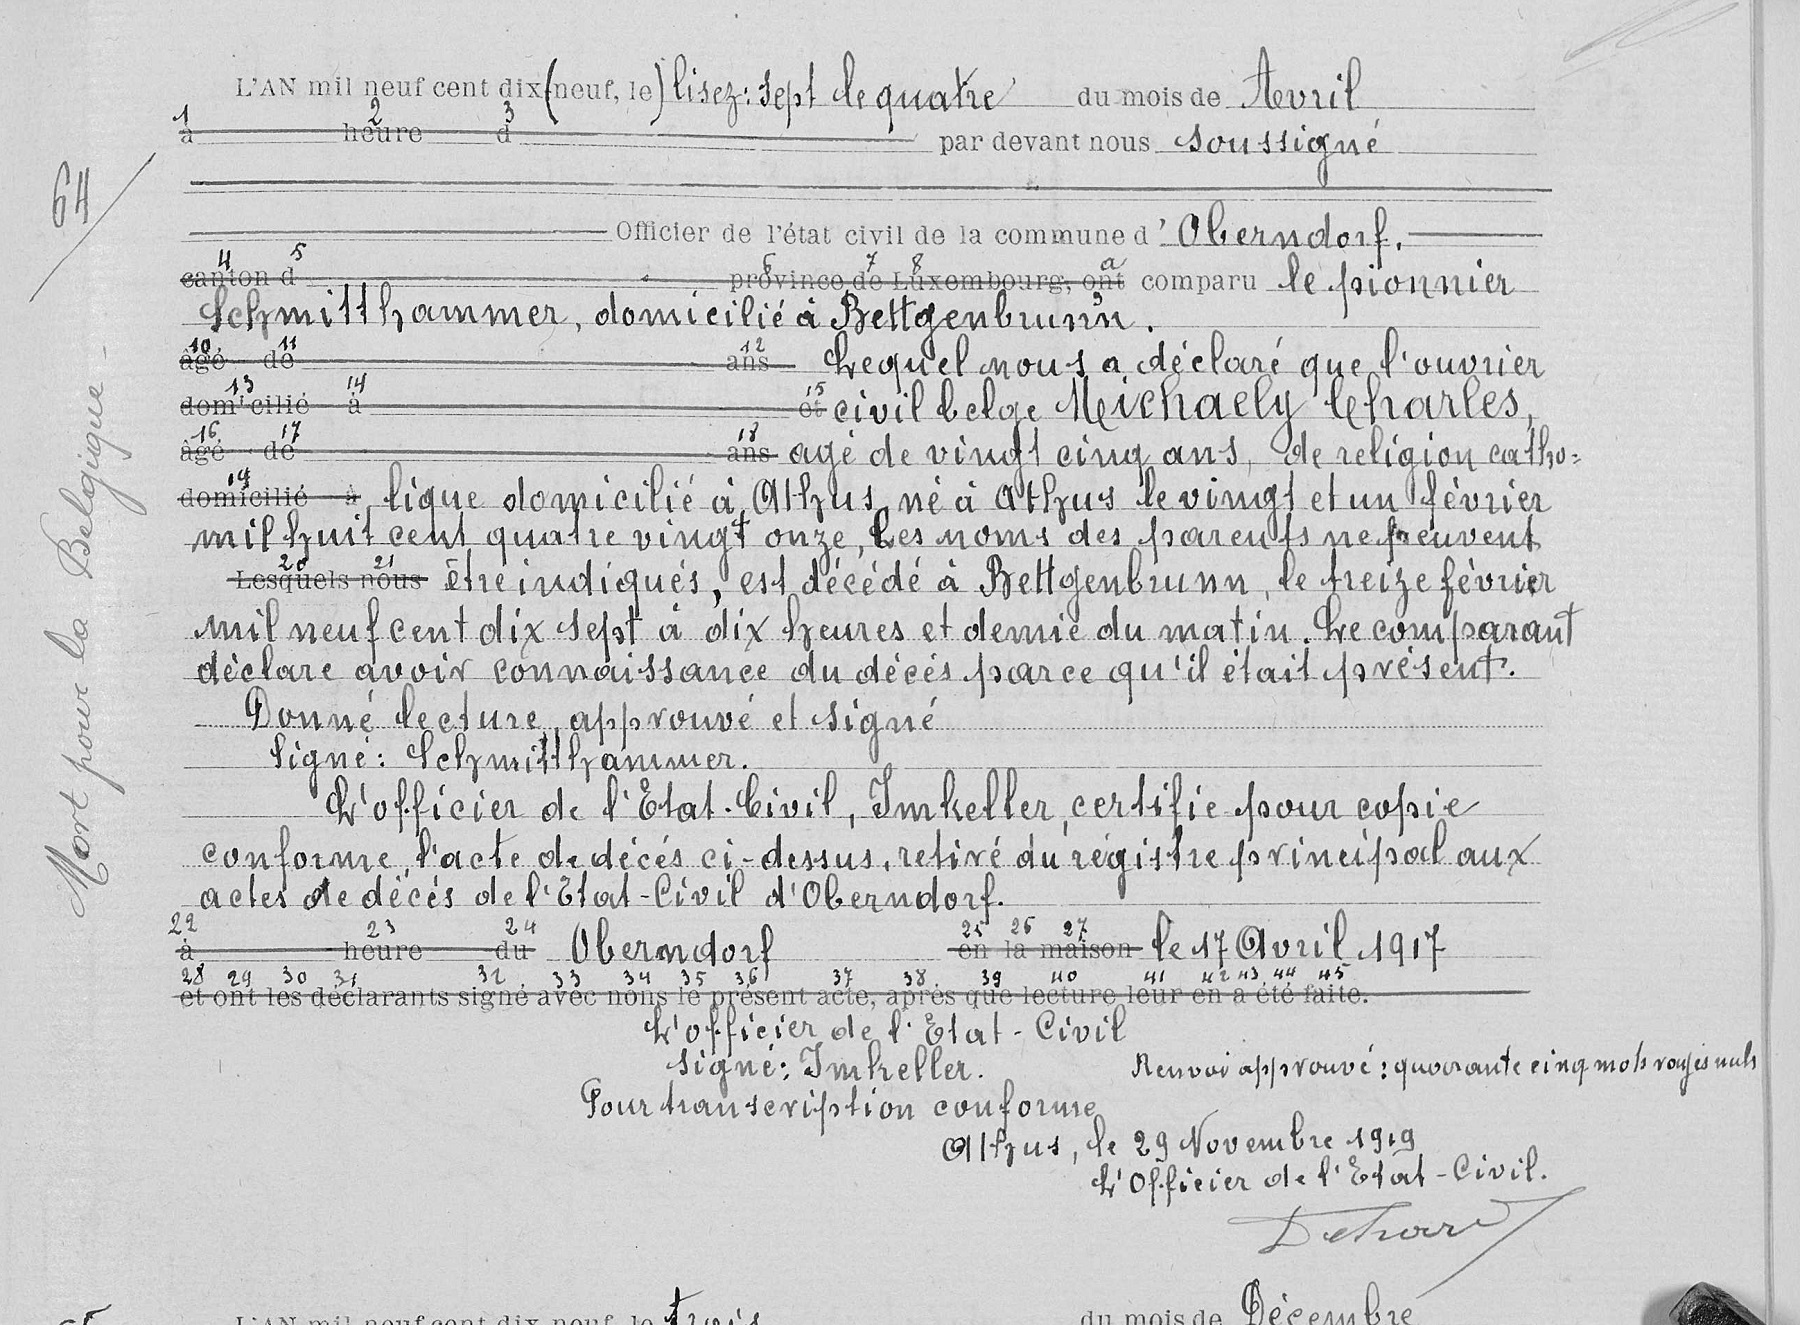 L'AN mil neuf cent dix (neuf, le) lisez: sept le quatre du mois de Avril
1 2 3
à heure d par devant nous soussigné
64
Officier de l'état civil de la commune d'Oberndorf.
4 5 6 7 8 a
canton d province de Luxembourg, ont comparu le pionnier
Schmitthammer, domicilié à Bettgenbrunn.
10 11 12
âgé de ans Lequel nous a déclaré que l'ouvrier
13 14 15
domicilié à et civil belge Michaely Charles,
16 17 18
âgé de ans agé de vingt cinq ans, de religion catho=
19
domicilié à lique domicilié à Athus né à Athus le vingt et un février
mil huit cent quatre vingt onze, Les noms des parents ne peuvent
20 21
Lesquels nous être indiqués, est décédé à Bettgenbrunn, le treize février
mil neuf cent dix sept à dix heures et demie du matin. Le comparant
déclare avoir connaissance du décés parce qu'il était présent.
Donné lecture, approuvé et signé
Signé: Schmitthammer.
L'officier de l'Etat-Civil, Imkeller, certifie pour copie
conforme l'acte de décés ci-dessus, retiré du régistre principal aux
actes de décés de l'Etat-Civil d'Oberndorf.
22 23 24 25 26 27
à heure du Oberndorf en la maison le 17 Avril 1917
28 29 30 31 32 33 34 35 36 37 38 39 40 41 42 43 44 45
et ont les déclarants signé avec nous le présent acte, après que lecture leur en a été faite.
L'officier de l'Etat-Civil
signé: Imkeller.
Renvoi approuvé: quarante cinq mots rayés nuls
Pour transcription conforme
Athus, le 29 Novembre 1919
L'Officier de l'Etat-Civil.
Mort pour la Belgique -
L'AN mil neuf cent dix-neuf, le trois du mois de Décembre